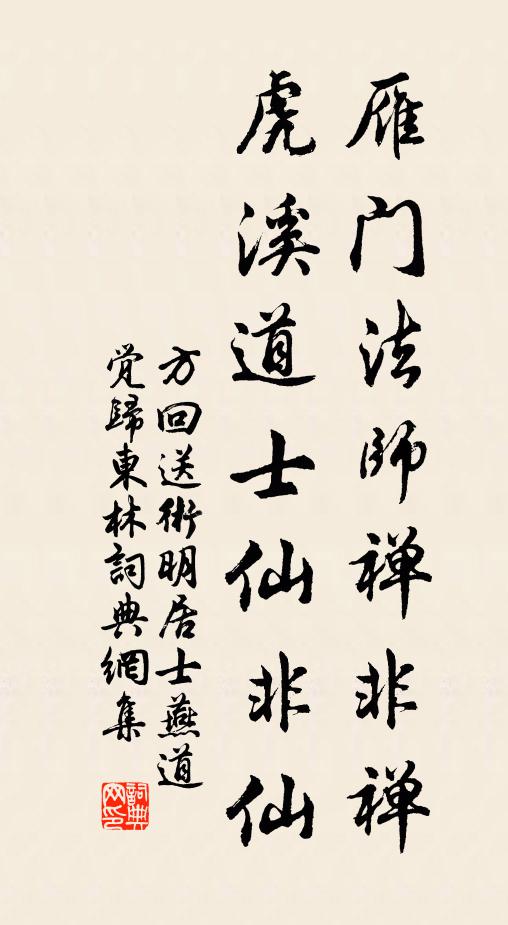 雁门法师禅非禅
虎溪道士仙非仙
方回送術明居士燕道
觉歸東林詞典網集
詞典
网印